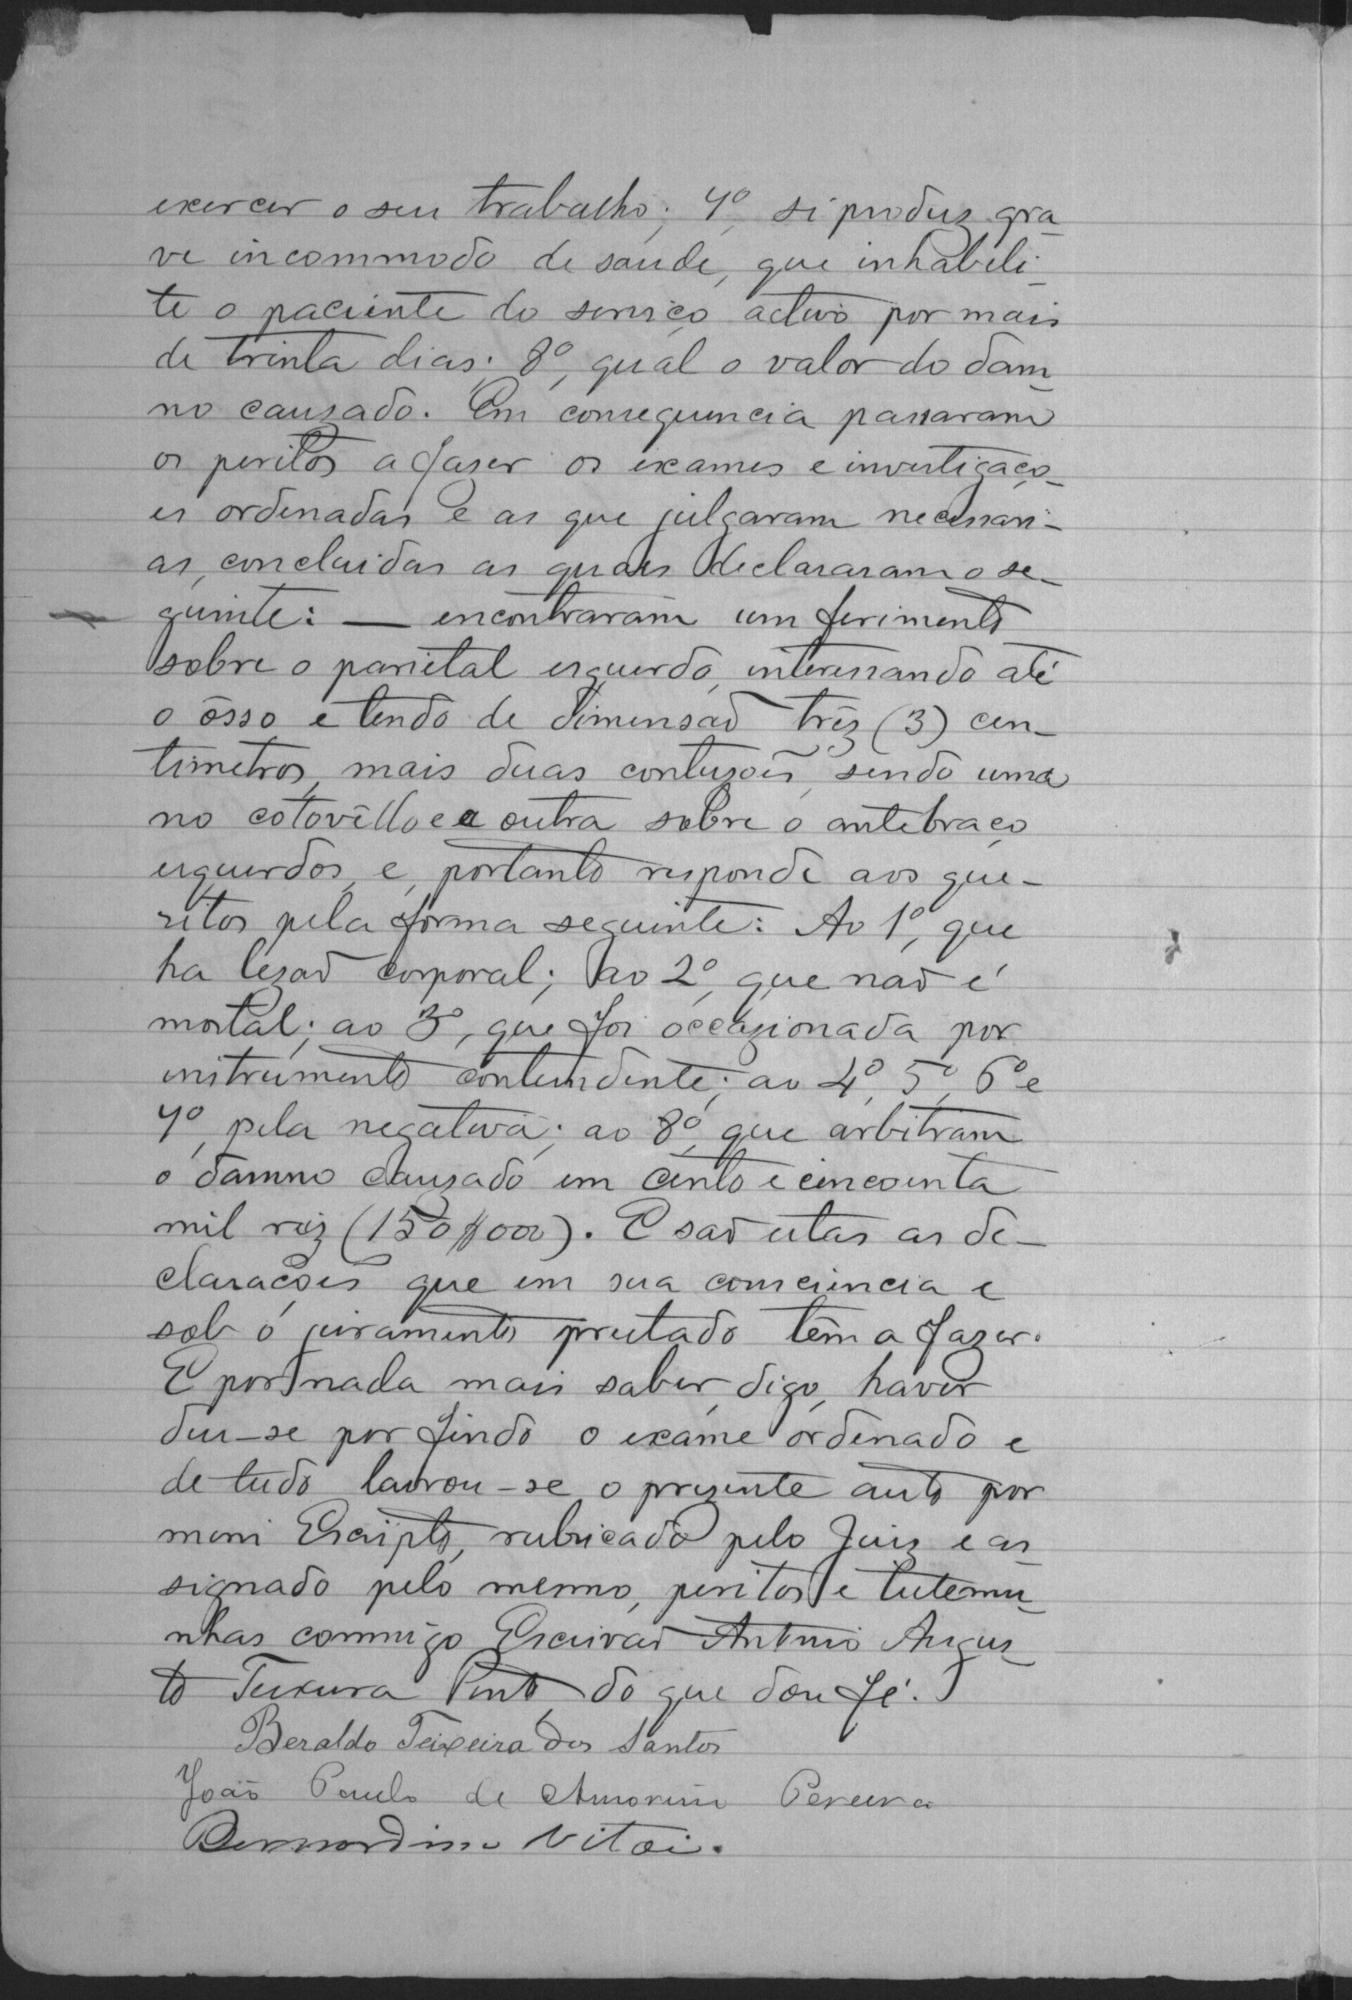 exercer o seu trabalho; 7º, si produz gra-
ve incommodo de saude, que inhabili-
te o paciente do serviço activo por mais
de trinta dias; 8º, qual o valor do dam-
no cauzado. Em consequencia passaram
os peritos a fazer os exames e investigaço-
es ordenadas e as que julgaram necessari-
as, concluidas as quaes declararam o se-
guinte: — encontraram um ferimento
sobre o parietal esquerdo, interessando até
o ôsso e tendo de dimensaõ trêz (3) cen-
timetros, mais duas contuzões, sendo uma
no cotovêllo e a outra sobre o antebraço
esquerdos, e, portanto responde aos que-
zitos pela forma seguinte: Ao 1º, que
ha lezaõ corporal; ao 2º, que naõ é
mortal; ao 3º, que foi occazionada por
instrumento contundente; ao 4º, 5º, 6º e
7º, pela negativa; ao 8º, que arbitram
o damno cauzado em cento e cincoenta
mil reiz (150$000). E saõ estas as de-
clarações que em sua consciencia e
sob o juramento prestado têm a fazer.
E por nada mais saber, digo, haver
deu-se por findo o exame ordenado e
de tudo lavrou-se o prezente auto por
mim Escripto, rubricado pelo Juiz e as-
signado pelo mesmo, peritos e testemu-
nhas commigo Escrivaõ Antonio Augus-
to Teixeira Pinto, do que dou fé.
Beraldo Teixeira dos Santos
João Paulo de Amorim Pereira
Bernardino Vitoi.